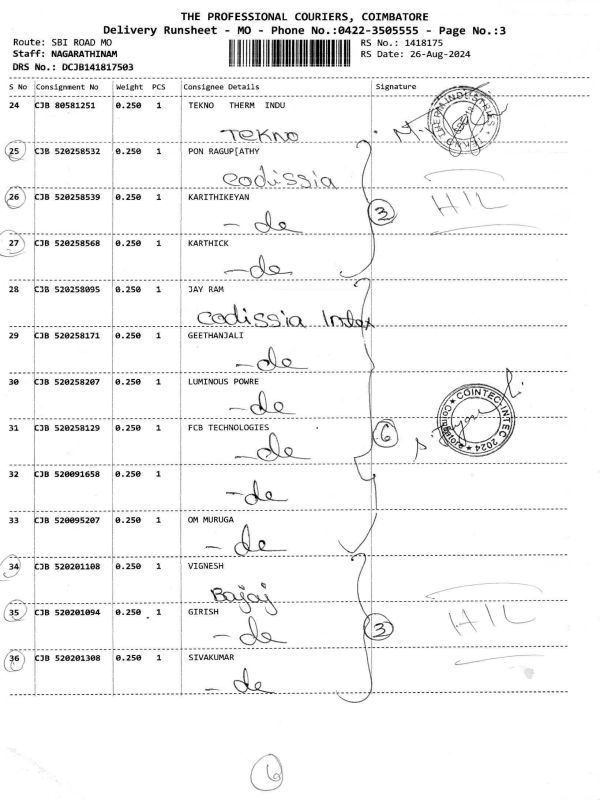 THE PROFESSIONAL COURIERS, COIMBATORE
Delivery Runsheet - MO - Phone No.:0422-3505555 - Page No.:3
Route: SBI ROAD MO
RS No.: 1418175
Staff: NAGARATHINAM
RS Date: 26-Aug-2024
DRS No.: DCJB141817503
S No Consignment No Weight PCS Consignee Details Signature
24 CJB 80581251 0.250 1 TEKNO THERM INDU
TEKNO
25 CJB 520258532 0.250 1 PON RAGUP[ATHY
codissia
26 CJB 520258539 0.250 1 KARITHIKEYAN
3 HIL
- do
27 CJB 520258568 0.250 1 KARTHICK
- do
28 CJB 520258095 0.250 1 JAY RAM
codissia Index
29 CJB 520258171 0.250 1 GEETHANJALI
- do
30 CJB 520258207 0.250 1 LUMINOUS POWRE
- do
COINTEC-INTEC 2024
31 CJB 520258129 0.250 1 FCB TECHNOLOGIES
6
- do
32 CJB 520091658 0.250 1
- do
33 CJB 520095207 0.250 1 OM MURUGA
- do
34 CJB 520201108 0.250 1 VIGNESH
Bajaj
35 CJB 520201094 0.250 1 GIRISH
3 HIL
- do
36 CJB 520201308 0.250 1 SIVAKUMAR
- do
6